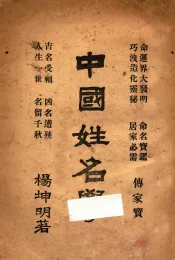 命運界大發明　命名寶鑑
巧洩造化靈秘　居家必需
傳家寶
中國姓名學
吉名受福　凶名遭殃
人生一世　名留千秋
楊坤明著